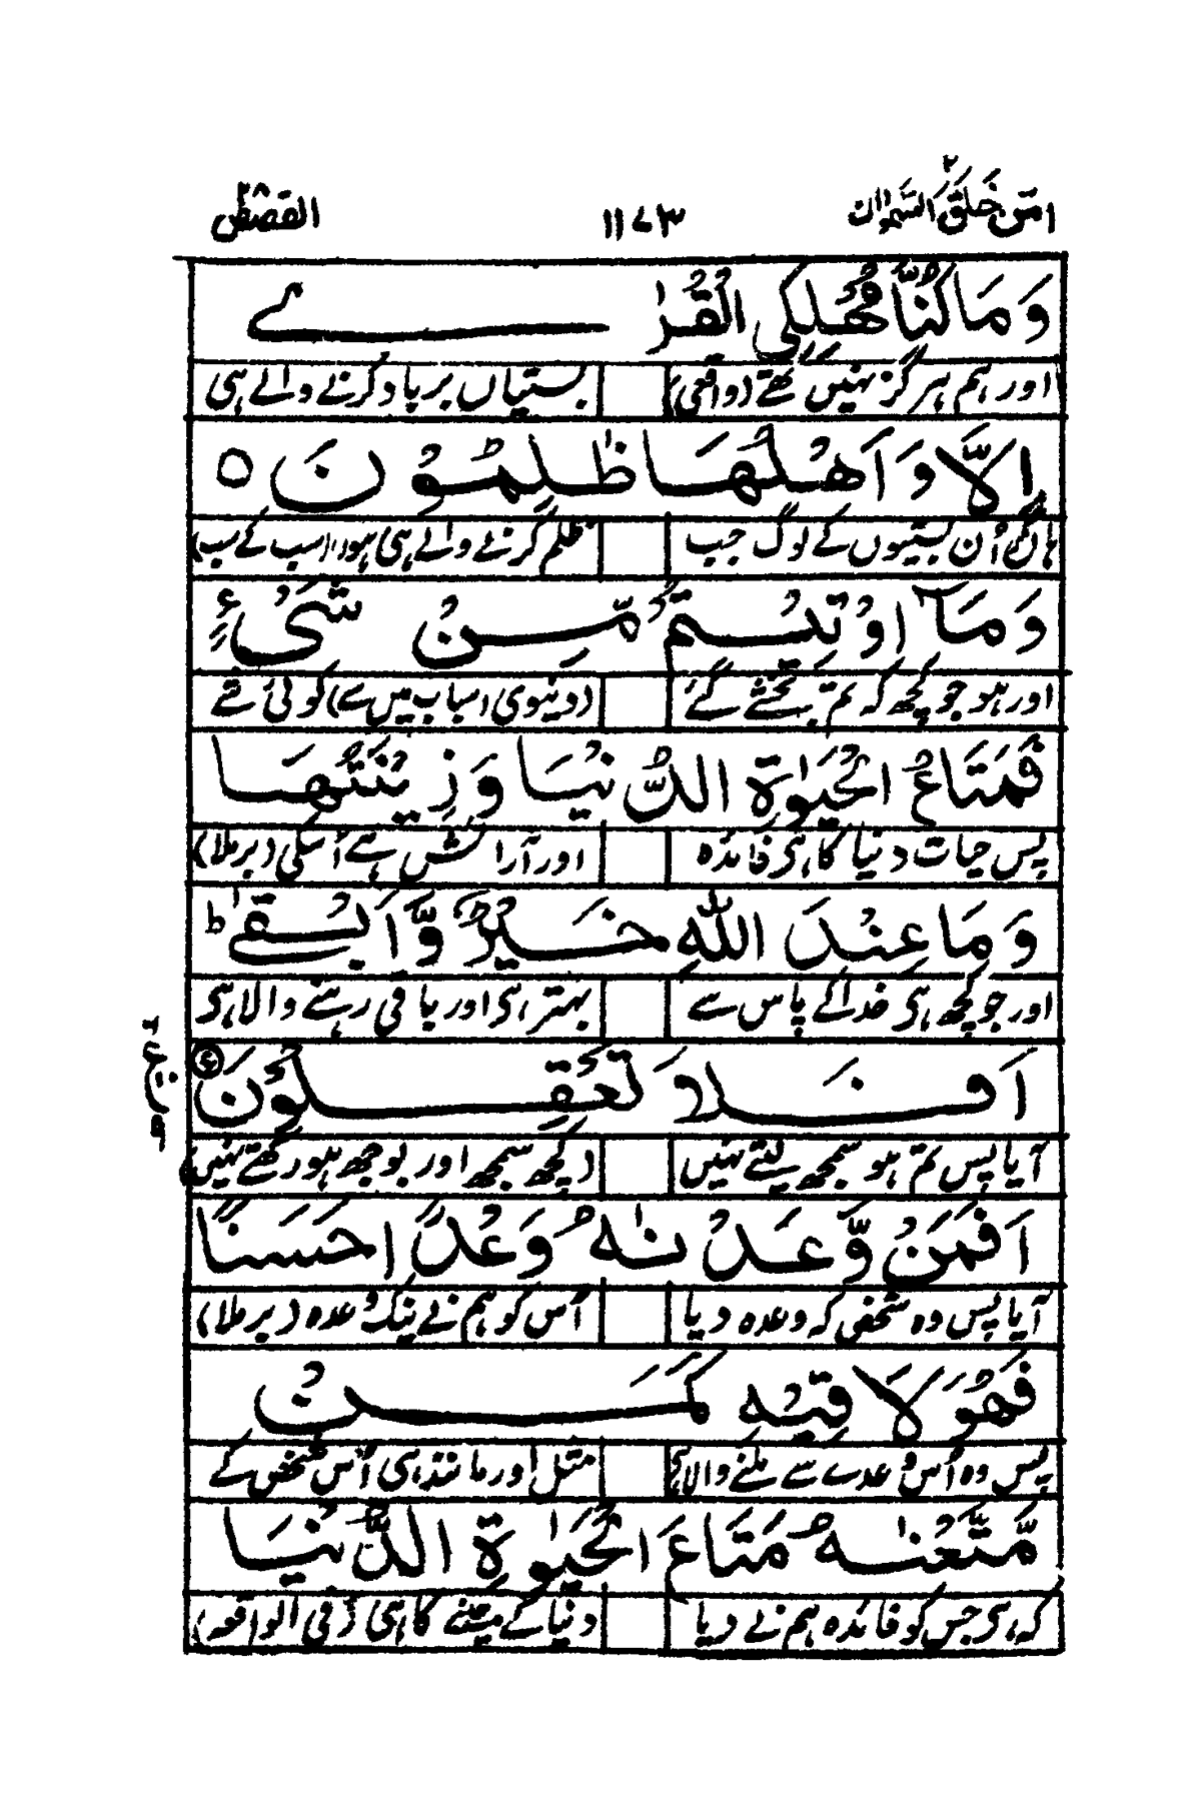 امن خلق السموات ۲۰ ۱۱۷۳ القصص ۲۸
وَمَا كُنَّا مُهْلِكِی الْقُرٰے
اور ہم ہرگز نہیں تھے (واقعی) بستیاں برباد کرنے والے ہی
اِلَّا وَاَهْلُهَا ظٰلِمُوْنَ ○
ہاں مگر اُن بستیوں کے لوگ جب ظلم کرنے والے ہی ہوں (سب کے سب)
وَمَآ اُوْتِيْتُمْ مِّنْ شَیْءٍ
اور ہو جو کچھ کہ تم بخشے گئے (دنیوی اسباب میں سے) کوئی شے
فَمَتَاعُ الْحَيٰوةِ الدُّنْيَا وَزِيْنَتُهَا
پس حیات دنیا کا ہی فائدہ اور آرائش ہے اُسکی (برملا)
وَمَا عِنْدَ اللّٰهِ خَيْرٌ وَّاَبْقٰی ط
اور جو کچھ ہی خدا کے پاس سے بہتر ہی اور باقی رہنے والا ہی
اَفَلَا تَعْقِلُوْنَ
آیا پس تم ہو سمجھ لیتے نہیں (کچھ سمجھ اور بوجھ ہو رکھتے نہیں)
اَفَمَنْ وَّعَدْنٰهُ وَعْدًا حَسَنًا
آیا پس وہ شخص کہ وعدہ دیا اُس کو ہم نے نیک وعدہ (برملا)
فَهُوَ لَاقِيْهِ كَمَنْ
پس وہ اُس وعدے سے ملنے والا ہی مثل اور مانند ہی اُس شخص کے
مَّتَّعْنٰهُ مَتَاعَ الْحَيٰوةِ الدُّنْيَا
کہ ہی جس کو فائدہ ہم نے دیا دنیا کے جینے کا ہی (فی الواقعہ)